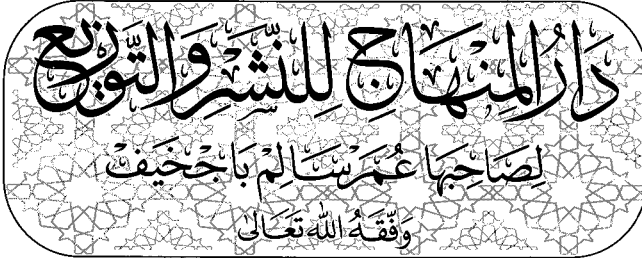 دَارُ المِنْهَاجِ لِلنَّشْرِ وَالتَّوْزِيعِ
لِصَاحِبِهَا عُمَر سَالِم بَاجْخَيف
وَفَّقَهُ اللّٰه تَعَالىٰ